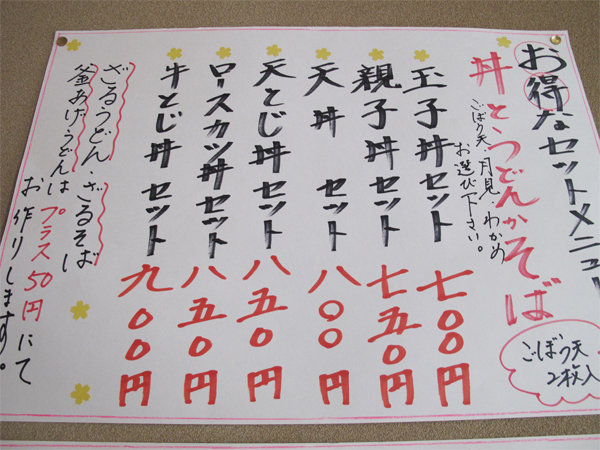 お得なセットメニュー
丼とうどんかそば
ごぼう天・月見・わかめ
お選び下さい。
ごぼう天
2枚入
玉子丼セット 七〇〇円
親子丼セット 七五〇円
天丼セット 八〇〇円
天とじ丼セット 八五〇円
ロースカツ丼セット 八五〇円
牛とじ丼セット 九〇〇円
ざるうどん・ざるそば
釜あげうどんは プラス50円にて
お作りします。